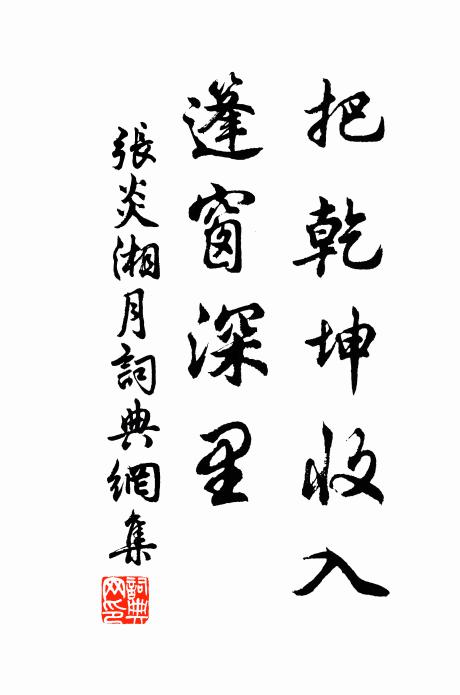 把乾坤收入
篷窗深里
張炎湘月詞典網集
詞典网印